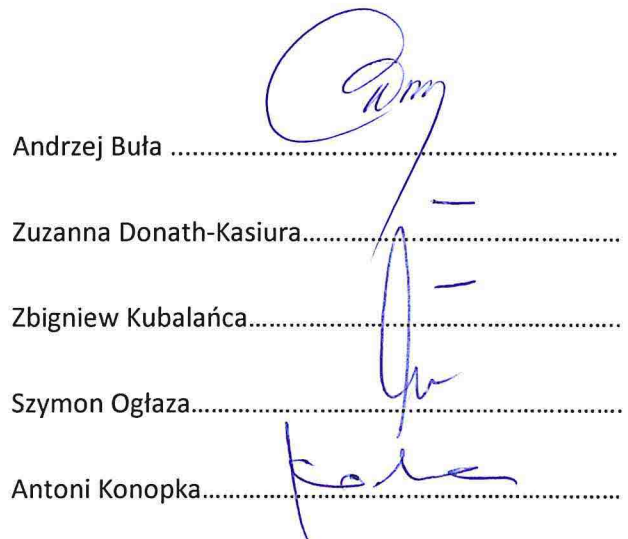 Andrzej Buła ..............................................................
Zuzanna Donath-Kasiura............................................
Zbigniew Kubalańca....................................................
Szymon Ogłaza............................................................
Antoni Konopka..........................................................